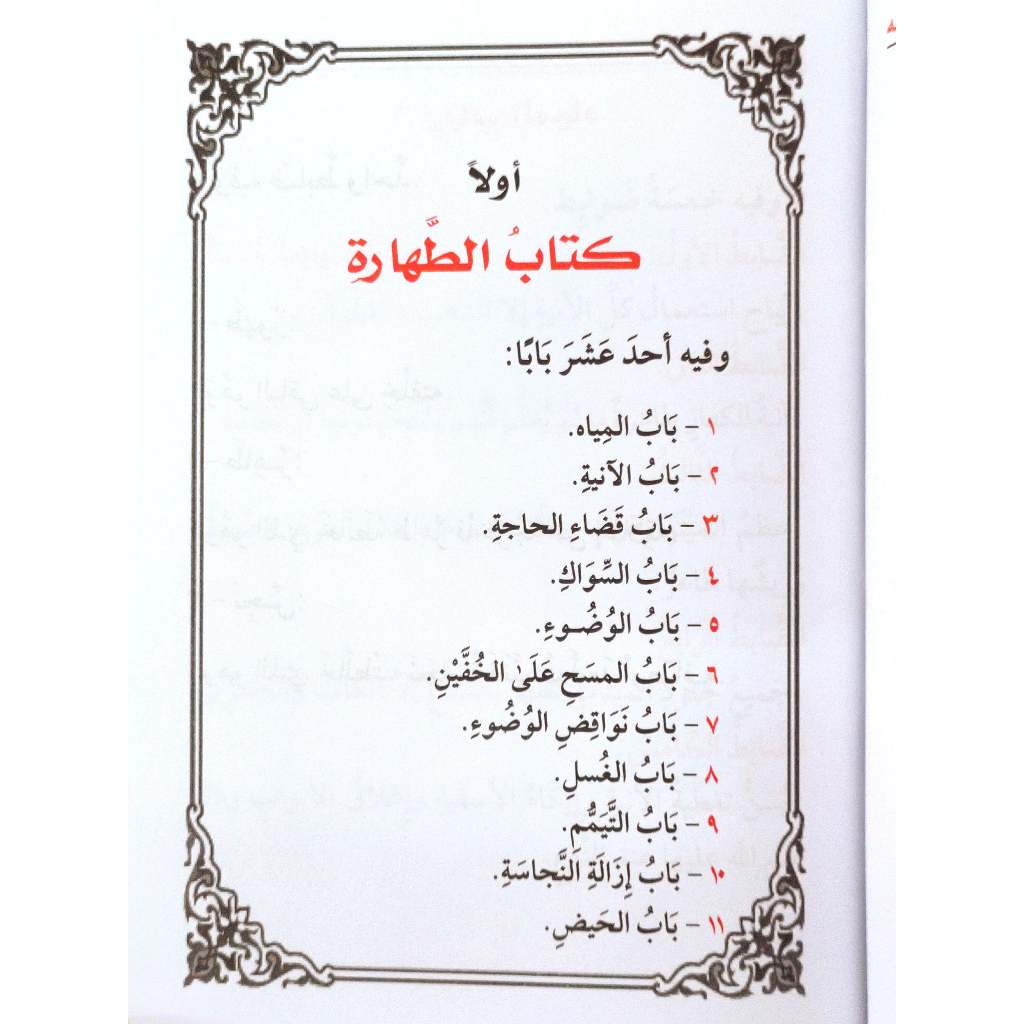 أولاً
كتابُ الطَّهارةِ
وفيه أحدَ عَشَرَ بَابًا:
١ - بَابُ المِياه.
٢ - بَابُ الآنيةِ.
٣ - بَابُ قَضَاءِ الحاجةِ.
٤ - بَابُ السِّوَاكِ.
٥ - بَابُ الوُضُوءِ.
٦ - بَابُ المَسَحِ عَلَىٰ الخُفَّيْنِ.
٧ - بَابُ نَوَاقِضِ الوُضُوءِ.
٨ - بَابُ الغُسلِ.
٩ - بَابُ التَّيَمُّمِ.
١٠ - بَابُ إِزَالَةِ النَّجاسَةِ.
١١ - بَابُ الحَيضِ.